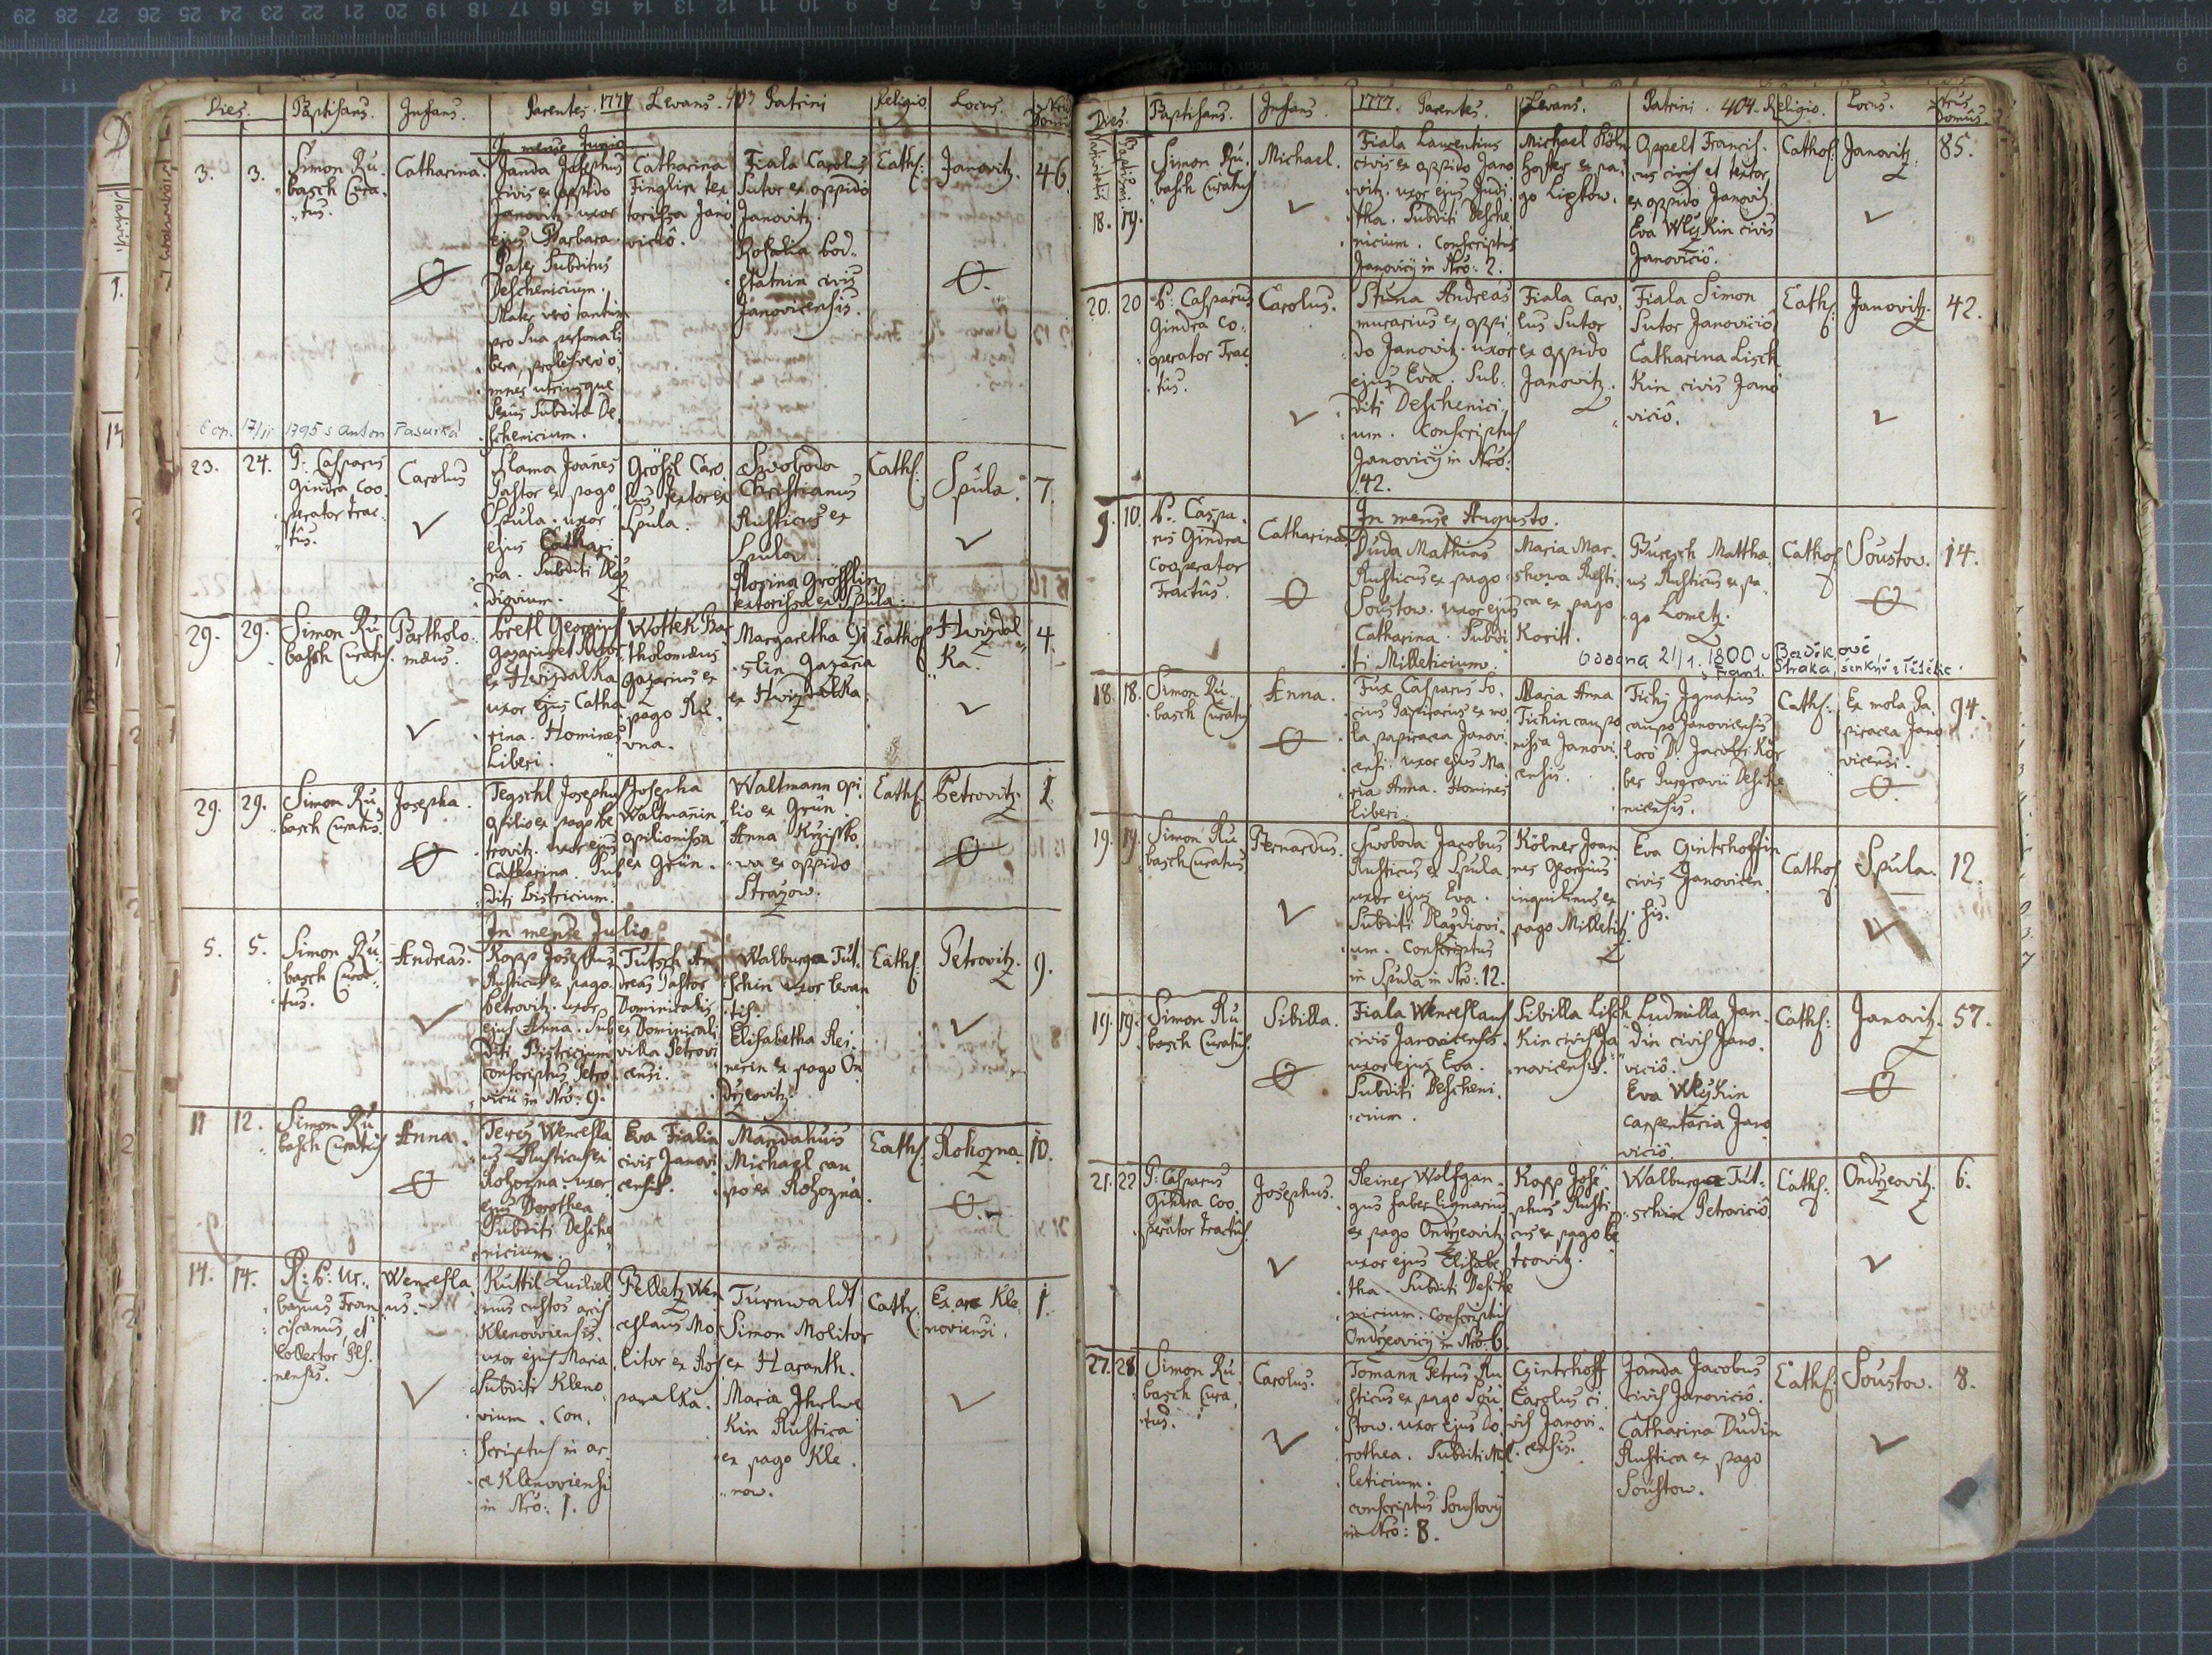 Dies. Baptisans. Infans. Parentes. 1777 Levans. 403 Patrini Religio Locus. Nrus Domus
In mense Junio
3. 3. Simon Ru-
basch Cura-
tus.
Catharina.
Janda Josephus
civis ex oppido
Janovitz. uxor
ejus Barbara.
Pater Subditus
Deschenicium.
Mater vero tantum
pro sua persona li
bera, proles vero o
mnes utriusque
sexus Subdita De
schenicium.
Catharina
Finglin tex
torissa Jano
viciô.
Fiala Carolus
Sutor ex oppido
Janovitz.
Rosalia
civis
Janovicensis.
Cath:
Janovitz.
46.
Cop. 17/II 1795 s Anton
23. 24. P: Casparus
Gindra Coo
perator trac-
tûs.
Carolus
Slama Joanes
Pastor ex pago
Spula. uxor
ejus Cathari
na. Subditi
Grössl Caro
lus textor ex
Spula.
Swoboda
Christianus
Rusticus ex
Spula.
Rosina Grösslin
textorissa ex Spula.
Cath:
Spula.
7.
29. 29. Simon Ru
basch Curatus.
Bartholo-
mæus.
Bretl Georgius
ex Hwizdalka
uxor ejus Catha
rina. Homines
Liberi.
Wottek Bar
tholomæus
gazarius ex
pago Kle
Margaretha
gazaria
ex Hwizdalka.
Cathol
Hwizdal
ka.
4
29. 29. Simon Ru
basch Curatus.
Josepha.
Tegschl Josephus
opilio ex pago Pe
trovitz. uxor ejus
Catharina. Sub
diti Bistricium.
Josepha
Waltmanin
opilionissa
ex Grün.
Waltmann opi
lio ex Grün.
Anna
ex oppido
Strazow.
Cath:
Petrovitz.
1
In mense Julio
5. 5. Simon Ru
basch Cura-
tus.
Andreas.
Kopp Josephus
Rusticus ex pago
Petrovitz. uxor
ejus Anna. Sub
diti Bistricium
conscriptus Petro
vicii in Nro: 9.
Tutsch An
dreas Pastor
Dominicalis
ex Dominicali
villa Petrovi
censi.
Walburga Tut-
schin uxor levan
tis.
Elisabetha Rei-
nerin ex pago On
drzeovitz.
Cath:
Petrovitz.
9.
11 12. Simon Ru
basch Curatus
Anna.
Wencesla
us Rusticus ex
Rohozna. uxor
ejus Dorothea
Subditi Desche
nicium.
Eva Fialin
civis Janovi
censis.
Michael cau
po ex Rohozna.
Cath:
Rohozna.
10.
14. 14. R: P: Ur-
banus Fran
ciscanus, et
Collector
Wencesla
us.
Kuttil Quiriel
mus custos arcis
Klenoviensis.
uxor ejus Maria
Subditi Kleno
vium. Con-
scriptus in ar-
ce Klenoviensi
in Nro: 1.
Pelletz Wen
ceslaus Mo
litor ex
Turnwaldt
Simon Molitor
ex Haranth.
Maria
Rustica
ex pago Kle
now.
Cath:
Ex arce Kle
noviensi.
1.
Dies. Baptisans. Infans. 1777. Parentes. Levans. Patrini. 404. Religio. Locus. Nrus Domus.
Nativitatis Baptismi
18. 19. Simon Ru-
basch Curatus
Michael.
Fiala Laurentius
civis ex oppido Jano
vitz. uxor ejus Judi
tha. Subditi Desche
nicium. Conscriptus
Janovicij in Nro: 2.
Michael
ex pa
go Liptow.
Oppelt Francis
cus civis et textor
ex oppido Janovitz.
Eva Wlzkin civis
Janoviciô.
Cathol:
Janovitz.
85.
20. 20 P: Casparus
Gindra Co-
operator Trac
tûs.
Carolus.
Stuna Andreas
murarius ex oppi
do Janovitz. uxor
ejus Eva. Sub-
diti Deschenici
um. Conscriptus
Janovicij in Nro:
42.
Fiala Caro-
lus Sutor
ex oppido
Janowitz.
Fiala Simon
Sutor Janoviciô
Catharina Lisch
kin civis Jano
viciô.
Cath:
Janovitz.
42.
In mense Augusto.
9. 10. P: Caspa-
rus Gindra
Cooperator
Tractûs.
Catharina
Duda Mathias
Rusticus ex pago
Soustow. uxor ejus
Catharina. Subdi
ti Milleticium.
Maria Mar-
skowa Rusti
ca ex pago
Koritt.
Buresch Mattha
us Rusticus ex pa-
go Lometz.
Cathol
Soustow.
14.
oddána 21/1. 1800 v
s Frant. Straka
18. 18. Simon Ru-
basch Curatus
Anna.
Fux Casparus So-
cius Papirarius ex mo
la papiracea Janovi
censi. uxor ejus Ma
ria Anna. Homines
liberi.
Maria Anna
Tichin caupo
nissa Janovi
censis.
Tichy Ignatius
caupo Janovicensis
loco D. Jacobi Kör
ber Burgravii Desche
nicensis.
Cath:
Ex mola Pa-
piracea Jano
vicensi.
94.
19. 19. Simon Ru
basch Curatus
Bernardus.
Swoboda Jacobus
Rusticus ex Spula
uxor ejus Eva.
Subditi
um. Conscriptus
in Spula in Nro: 12.
Kölner Joan
nes Georgius
inquilinus ex
pago Milletitz
Eva Gintrhoffin
civis Janovicen
sis.
Cathol
Spula.
12.
19. 19. Simon Ru
basch Curatus.
Sibilla.
Fiala Wenceslaus
civis Janovicensis.
uxor ejus Eva.
Subditi Descheni
cium.
Sibilla Lisch
kin civis Ja
novicensis.
Ludmilla Jan-
din civis Jano-
viciô.
Eva Wlzkin
carpentaria Jano
viciô.
Cath:
Janovitz.
57.
21. 22 P: Casparus
Gindra Coo
perator tractûs.
Josephus.
Reiner Wolfgan-
gus faber lignarius
ex pago Ondrzeovitz
uxor ejus Elisabe
tha. Subditi Desche
nicium. Conscriptus
Ondrzeovicij in Nro: 6.
Kopp Jose-
phus Rusti
cus ex pago Pe
trovitz.
Walburga Tut-
schin Petroviciô
Cath:
Ondrzeovitz.
6.
27. 28. Simon Ru
basch Cura
tus.
Carolus.
Tomann Petrus Ru
sticus ex pago Sou
stow. uxor ejus Do
rothea. Subditi Mil
leticium.
conscriptus Soustovij
in Nro: 8.
Gintrhoff
Carolus ci
vis Janovi
censis.
Janda Jacobus
civis Janoviciô.
Catharina Dudin
Rustica ex pago
Soustow.
Cath:
Soustow.
8.